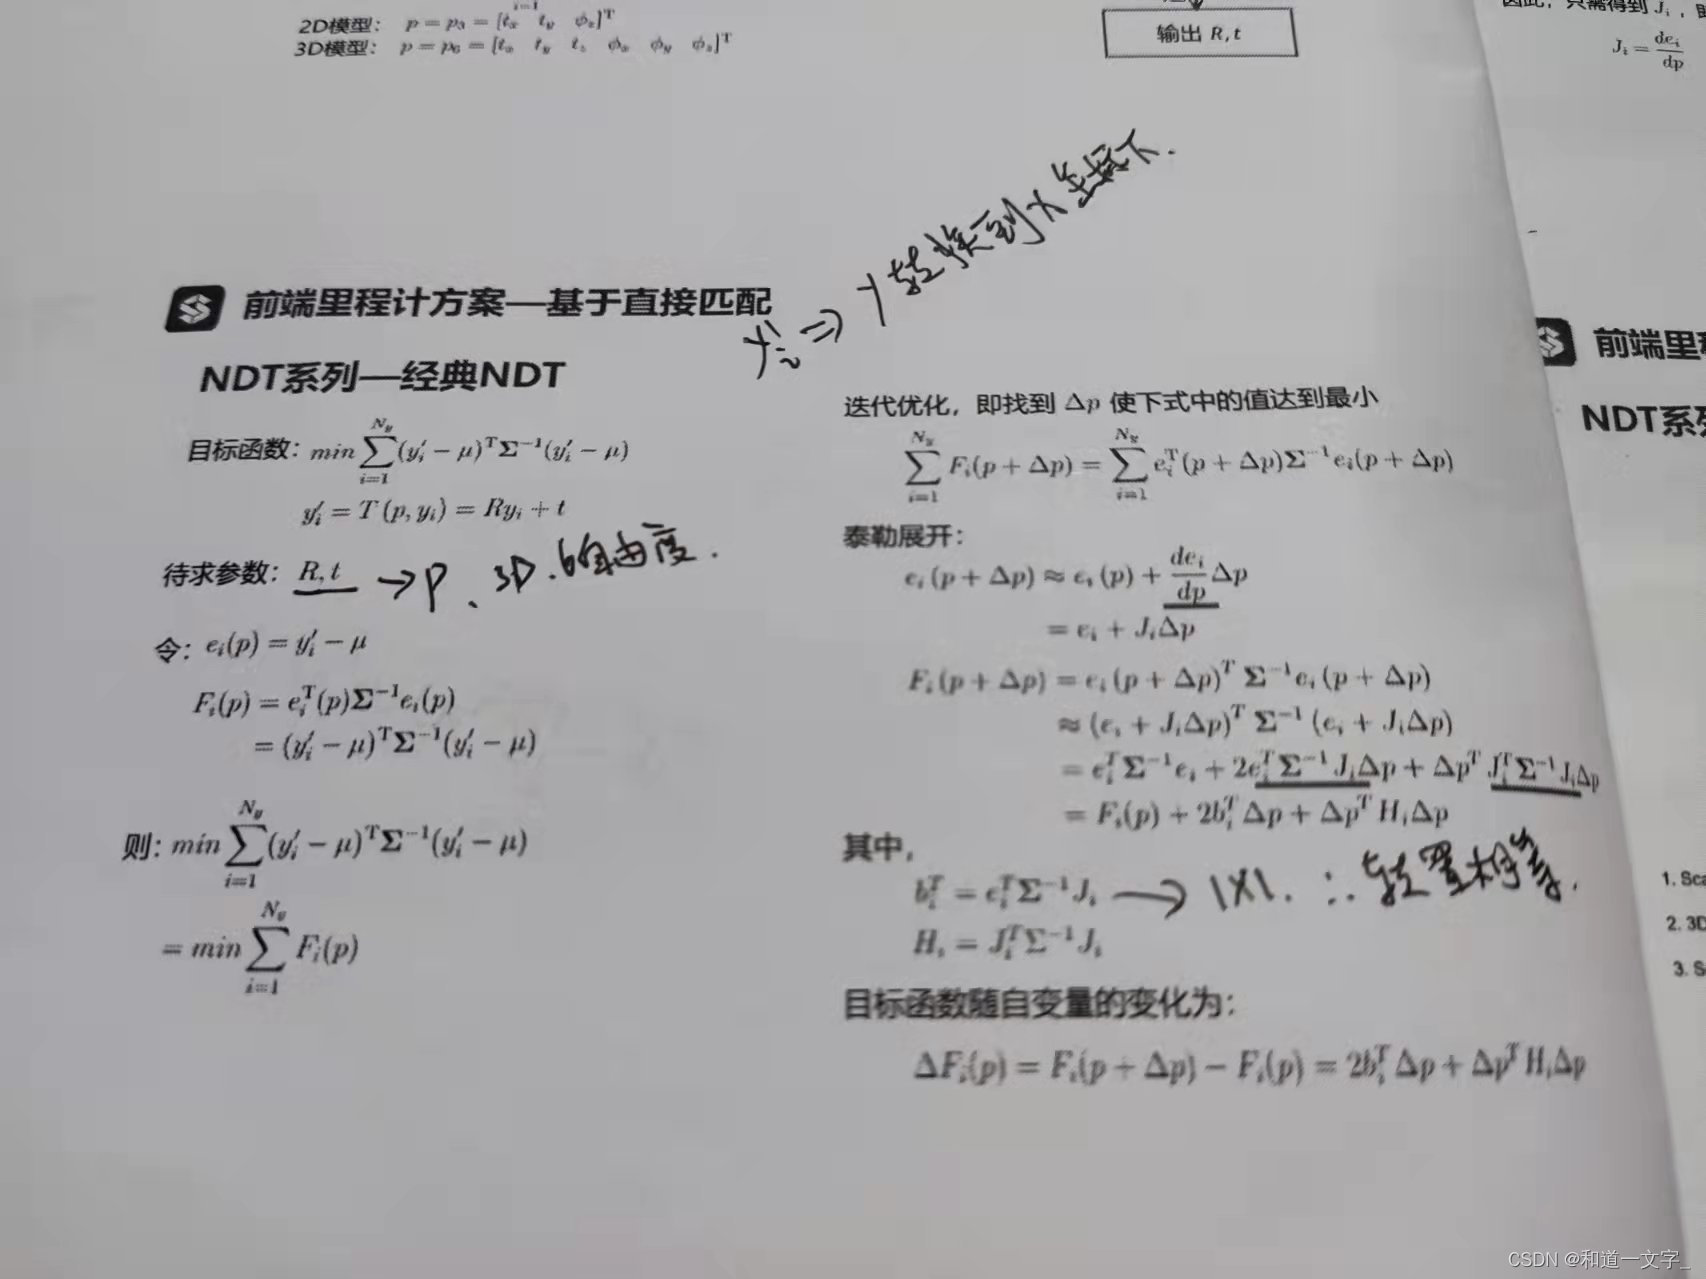 2D模型： p = p₃ = [tₓ t_y ϕ_z]ᵀ
3D模型： p = p₆ = [tₓ t_y t_z ϕₓ ϕ_y ϕ_z]ᵀ
输出 R,t
因此，只需得到 Jᵢ，
Jᵢ = deᵢ/dp
yᵢ' ⇒ Y转换到X坐标下.
前端里程计方案—基于直接匹配
NDT系列—经典NDT
目标函数： min ∑_{i=1}^{N_y} (yᵢ′ − μ)ᵀΣ⁻¹(yᵢ′ − μ)
yᵢ′ = T(p, yᵢ) = Ryᵢ + t
待求参数： R, t → P、3D.6自由度.
令： eᵢ(p) = yᵢ′ − μ
Fᵢ(p) = eᵢᵀ(p)Σ⁻¹eᵢ(p)
= (yᵢ′ − μ)ᵀΣ⁻¹(yᵢ′ − μ)
则： min ∑_{i=1}^{N_y} (yᵢ′ − μ)ᵀΣ⁻¹(yᵢ′ − μ)
= min ∑_{i=1}^{N_y} Fᵢ(p)
迭代优化，即找到 Δp 使下式中的值达到最小
∑_{i=1}^{N_y} Fᵢ(p + Δp) = ∑_{i=1}^{N_y} eᵢᵀ(p + Δp)Σ⁻¹eᵢ(p + Δp)
泰勒展开：
eᵢ(p + Δp) ≈ eᵢ(p) + deᵢ/dp Δp
= eᵢ + JᵢΔp
Fᵢ(p + Δp) = eᵢ(p + Δp)ᵀ Σ⁻¹eᵢ(p + Δp)
≈ (eᵢ + JᵢΔp)ᵀ Σ⁻¹ (eᵢ + JᵢΔp)
= eᵢᵀΣ⁻¹eᵢ + 2eᵢᵀΣ⁻¹JᵢΔp + ΔpᵀJᵢᵀΣ⁻¹JᵢΔp
= Fᵢ(p) + 2bᵢᵀΔp + ΔpᵀHᵢΔp
其中，
bᵢᵀ = eᵢᵀΣ⁻¹Jᵢ → 1X1. ∴转置相等.
Hᵢ = JᵢᵀΣ⁻¹Jᵢ
目标函数随自变量的变化为：
ΔFᵢ(p) = Fᵢ(p + Δp) − Fᵢ(p) = 2bᵢᵀΔp + ΔpᵀHᵢΔp
前端里程
NDT系列
1. Sca
2. 3D
3. S
CSDN @和道一文字_